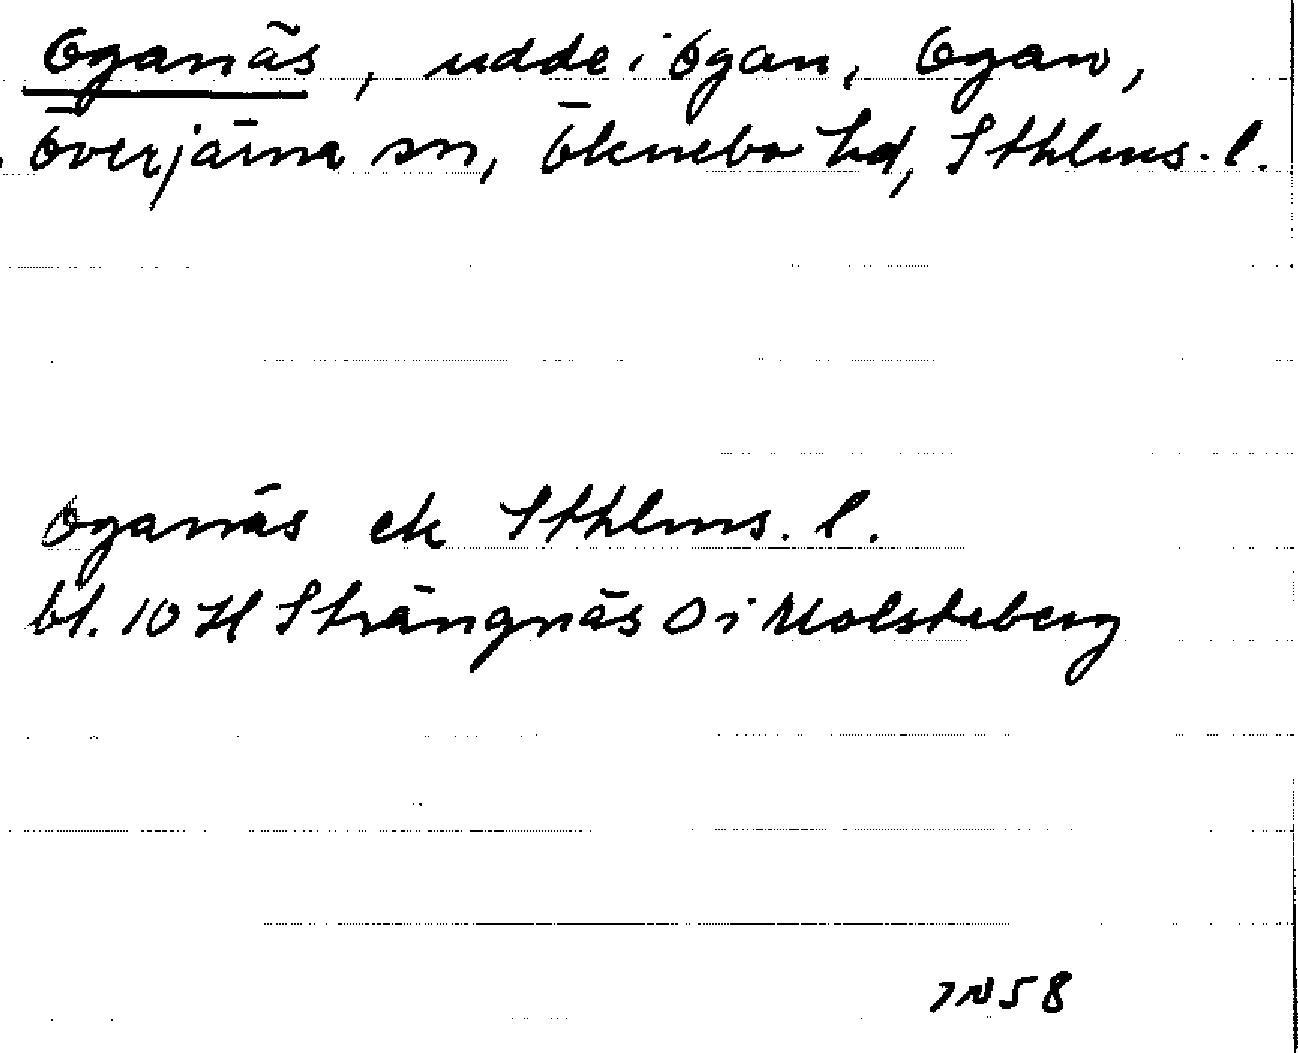 Oganäs, udde i Ogan, Ogan,
Överjärna sn, Öknebo hd, Sthlms. l.
Oganäs ek Sthlms. l.
bl. 10 H Strängnäs O i Molsteberg
IN58